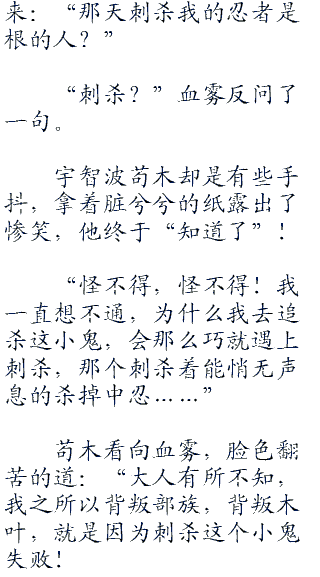 来：“那天刺杀我的忍者是
根的人？”
“刺杀？”血雾反问了
一句。
宇智波苟木却是有些手
抖，拿着脏兮兮的纸露出了
惨笑，他终于“知道了”！
“怪不得，怪不得！我
一直想不通，为什么我去追
杀这小鬼，会那么巧就遇上
刺杀，那个刺杀着能悄无声
息的杀掉中忍……”
苟木看向血雾，脸色翻
苦的道：“大人有所不知，
我之所以背叛部族，背叛木
叶，就是因为刺杀这个小鬼
失败！